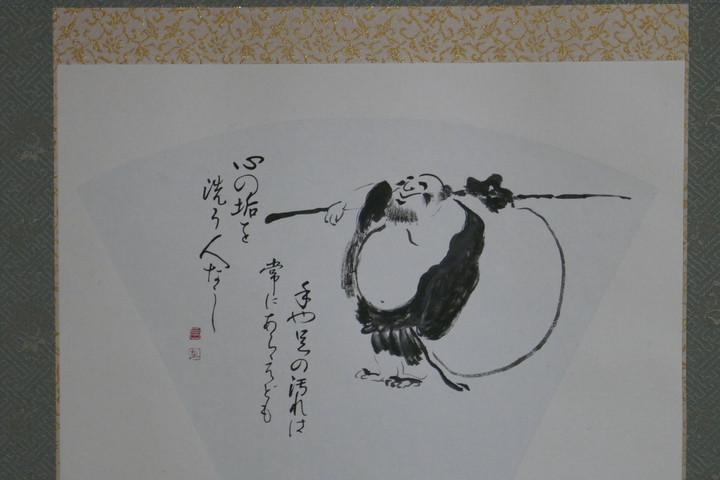 手や足の汚れは
常にあらへども
心の垢を
洗う人なし